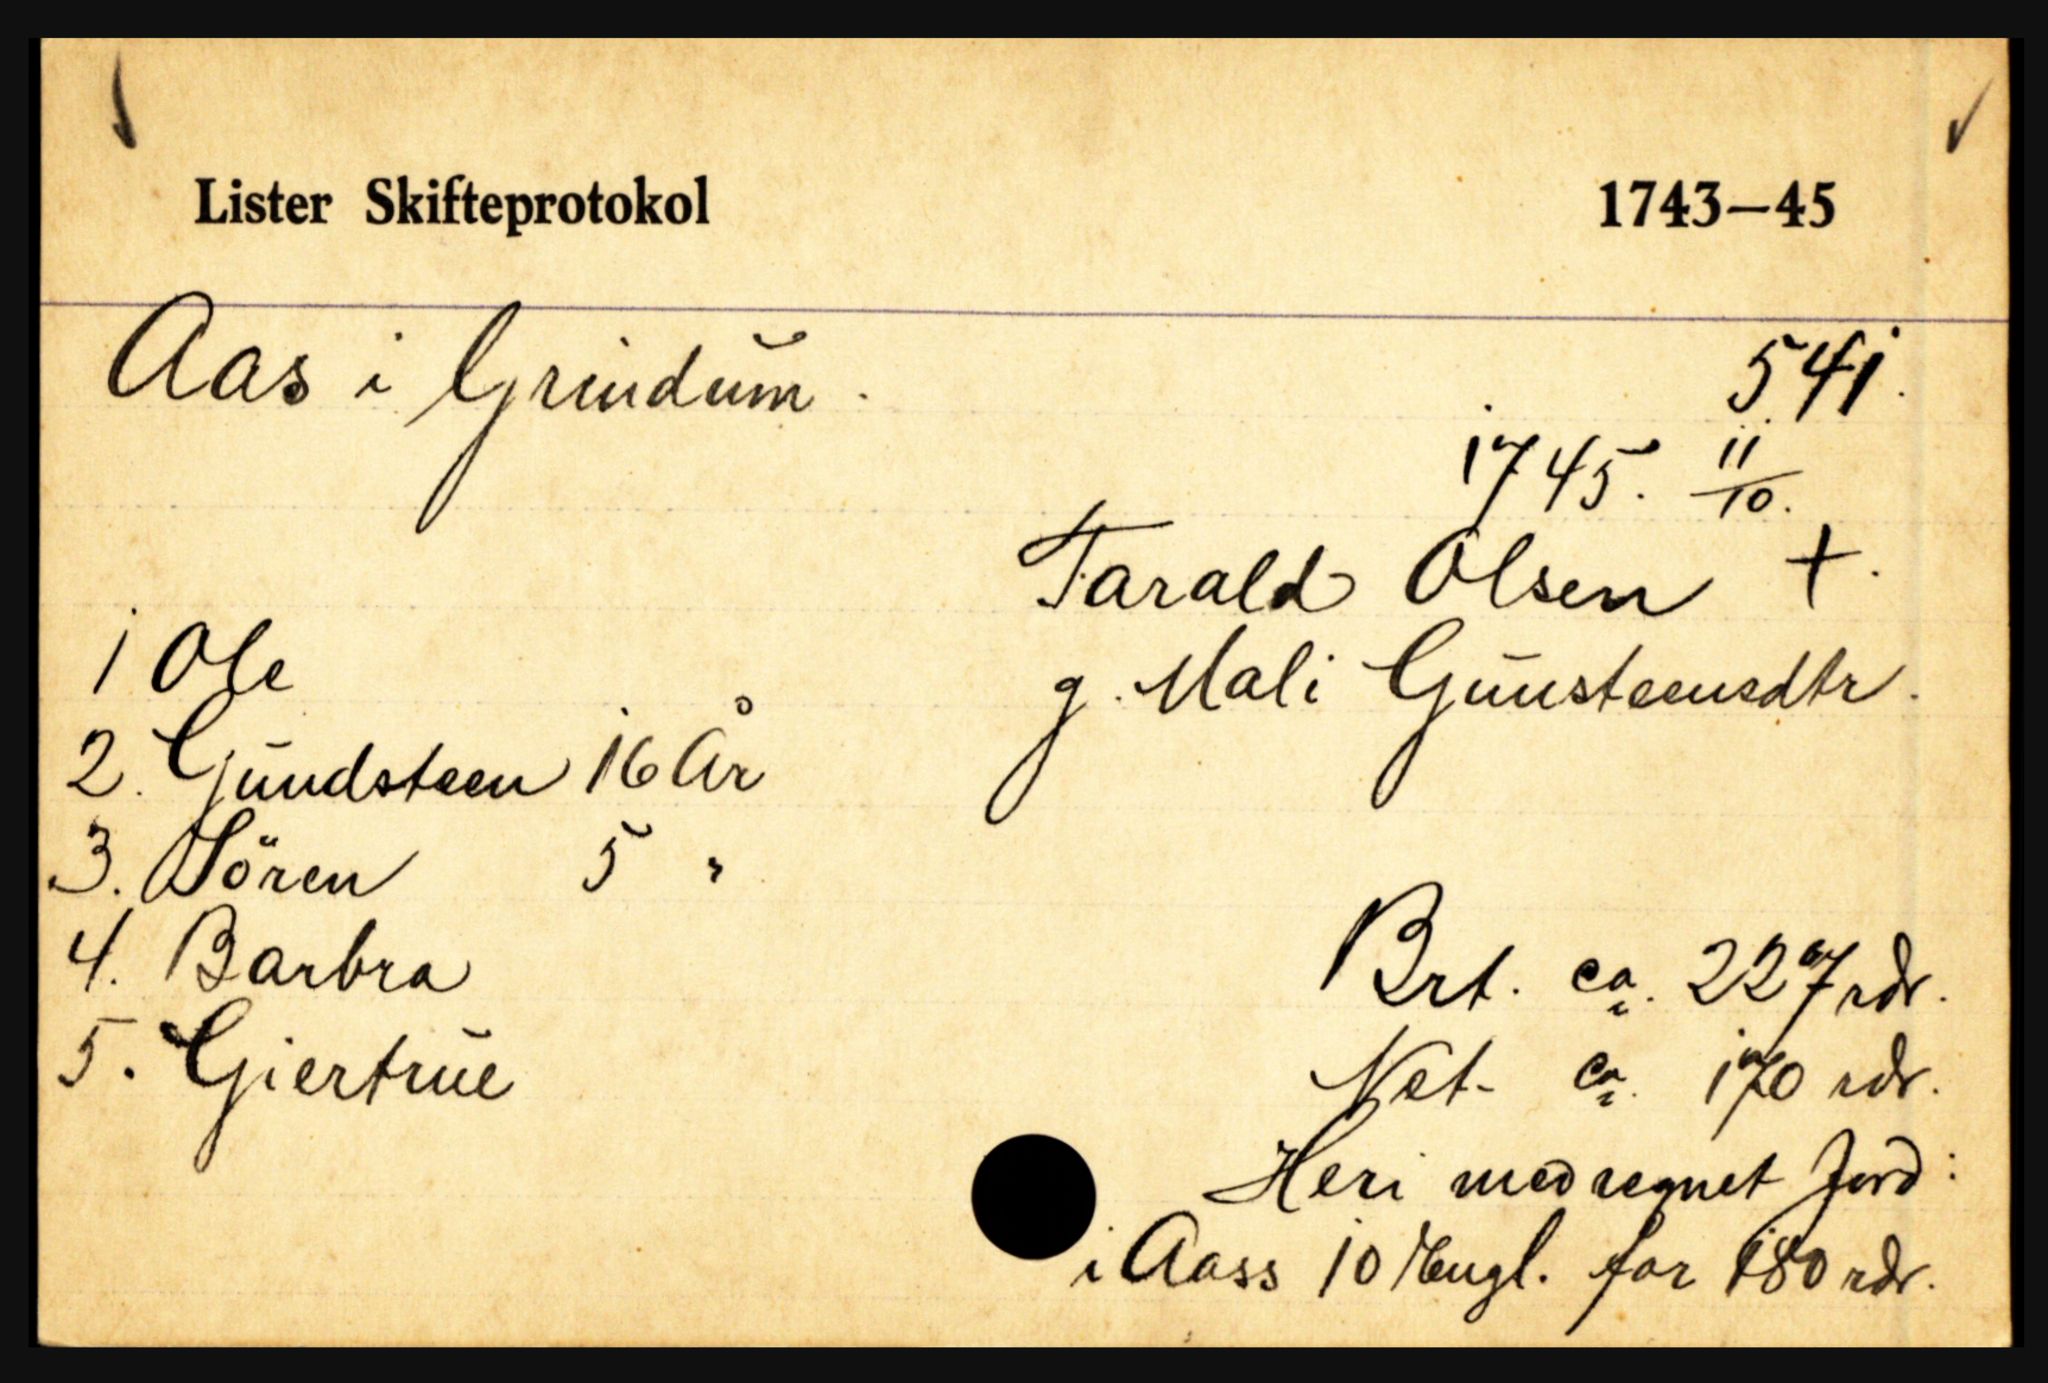 Lister Skifteprotokol 1743–45
Aas i Grindum.
541.
1745. 11/10.
Tarald Olsen +.
g. Mali Gunsteensdtr.
1 Ole
2. Gundsteen 16 År
3. Sören 5 "
4. Barbra
5. Giertrue
Brt. ca. 227 rdr.
Net- ca. 170 rdr.
Heri medregnet Jord:
i Aass 10 Engl. for 180 rdr.